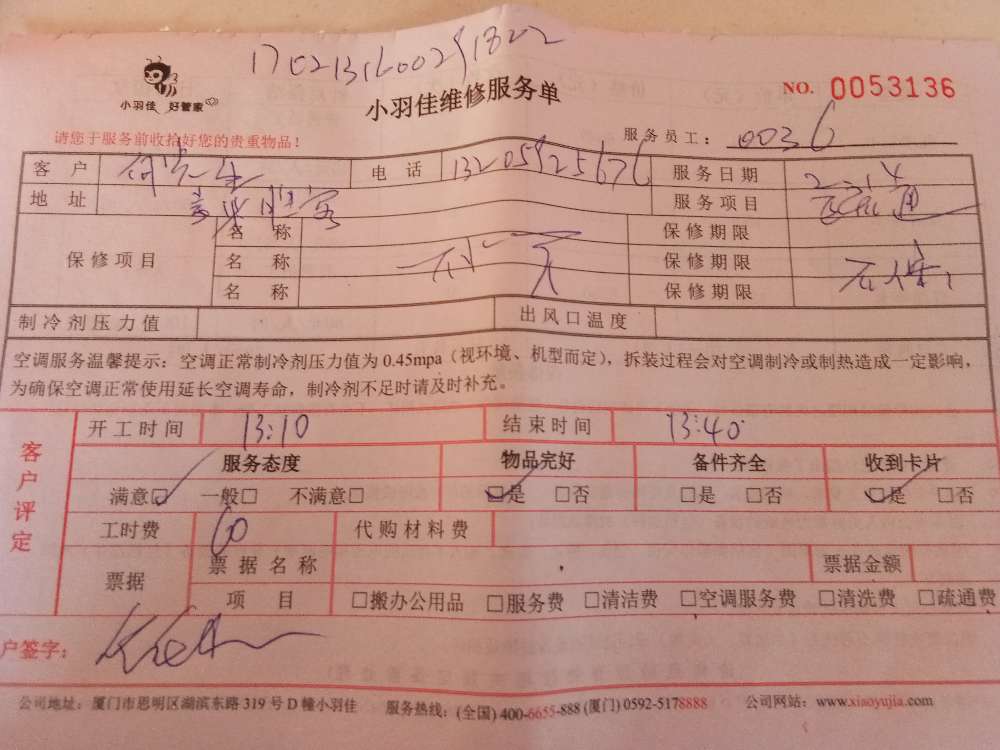 1702131600251822
小羽佳 好管家
小羽佳维修服务单
NO. 0053136
请您于服务前收拾好您的贵重物品！
服务员工： 0036
客 户 电 话 13205925676 服务日期 2.14
地 址 服务项目
保修项目 名 称 保修期限
名 称 保修期限
名 称 保修期限
制冷剂压力值 出风口温度
空调服务温馨提示：空调正常制冷剂压力值为 0.45mpa（视环境、机型而定），拆装过程会对空调制冷或制热造成一定影响，
为确保空调正常使用延长空调寿命，制冷剂不足时请及时补充。
客户评定
开工时间 13:10 结束时间 13:40
服务态度 物品完好 备件齐全 收到卡片
满意☑ 一般□ 不满意□ ☑是 □否 □是 □否 ☑是 □否
工时费 60 代购材料费
票据 票据名称 票据金额
项 目 □搬办公用品 □服务费 □清洁费 □空调服务费 □清洗费 □疏通费
户签字：
公司地址：厦门市思明区湖滨东路 319 号 D 幢小羽佳 服务热线：(全国) 400-6655-888 (厦门) 0592-5178888 公司网站：www.xiaoyujia.com